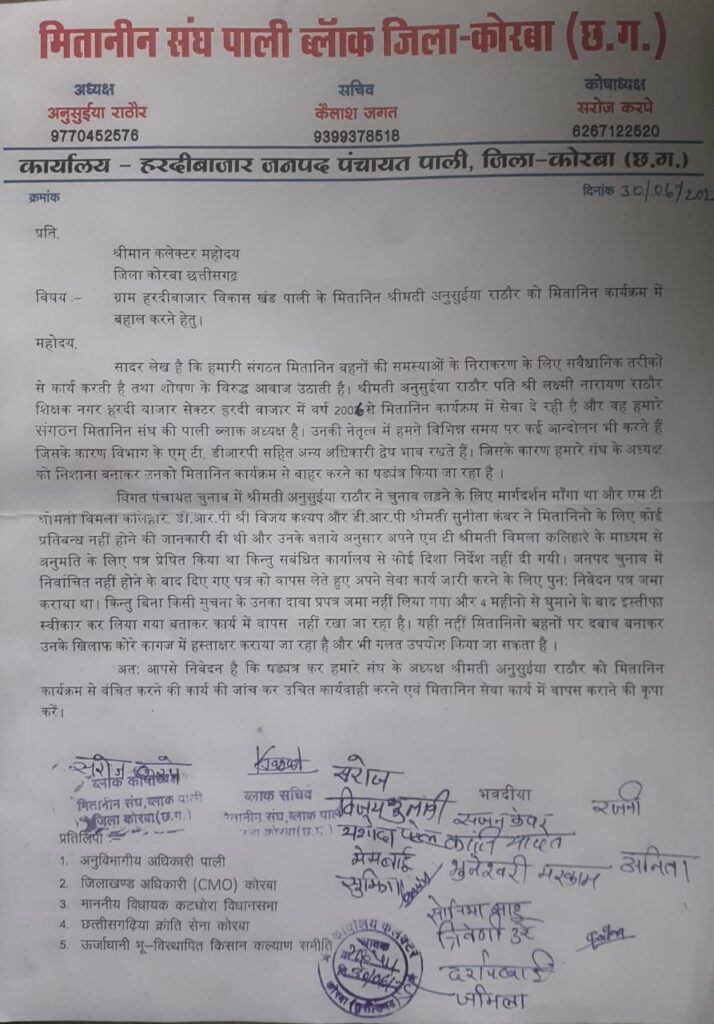 मितानीन संघ पाली ब्लॉक जिला-कोरबा (छ.ग.)
अध्यक्ष
अनुसुईया राठौर
9770452576
सचिव
कैलाश जगत
9399378518
कोषाध्यक्ष
सरोज करपे
6267122520
कार्यालय - हरदीबाजार जनपद पंचायत पाली, जिला-कोरबा (छ.ग.)
क्रमांक
दिनांक 30/06/202
प्रति,
श्रीमान कलेक्टर महोदय
जिला कोरबा छत्तीसगढ़
विषय :- ग्राम हरदीबाजार विकास खंड पाली के मितानिन श्रीमती अनुसुईया राठौर को मितानिन कार्यक्रम में
बहाल करने हेतु।
महोदय,
सादर लेख है कि हमारी संगठन मितानिन बहनों की समस्याओं के निराकरण के लिए सवैधानिक तरीकों
से कार्य करती है तथा शोषण के विरुद्ध आवाज उठाती है। श्रीमती अनुसुईया राठौर पति श्री लक्ष्मी नारायण राठौर
शिक्षक नगर हरदी बाजार सेक्टर हरदी बाजार में वर्ष 2006 से मितानिन कार्यक्रम में सेवा दे रही है और वह हमारे
संगठन मितानिन संघ की पाली ब्लाक अध्यक्ष है। उनकी नेतृत्व में हमने विभिन्न समय पर कई आन्दोलन भी करते हैं
जिसके कारण विभाग के एम् टी, डीआरपी सहित अन्य अधिकारी द्वेष भाव रखते हैं। जिसके कारण हमारे संघ के अध्यक्ष
को निशाना बनाकर उनको मितानिन कार्यक्रम से बाहर करने का षड्यंत्र किया जा रहा है ।
विगत पंचायत चुनाव में श्रीमती अनुसुईया राठौर ने चुनाव लड़ने के लिए मार्गदर्शन माँगा था और एम टी
श्रीमती विमला कलिहारे, डी.आर.पी श्री विजय कश्यप और डी.आर.पी श्रीमती सुनीता कंवर ने मितानिनो के लिए कोई
प्रतिबन्ध नहीं होने की जानकारी दी थी और उनके बताये अनुसार अपने एम टी श्रीमती विमला कलिहारे के माध्यम से
अनुमति के लिए पत्र प्रेषित किया था किन्तु सबंधित कार्यालय से कोई दिशा निर्देश नहीं दी गयी। जनपद चुनाव में
निर्वाचित नहीं होने के बाद दिए गए पत्र को वापस लेते हुए अपने सेवा कार्य जारी करने के लिए पुनः निवेदन पत्र जमा
कराया था। किन्तु बिना किसी सुचना के उनका दावा प्रपत्र जमा नहीं लिया गया और 4 महीनो से घुमाने के बाद इस्तीफा
स्वीकार कर लिया गया बताकर कार्य में वापस नहीं रखा जा रहा है। यही नहीं मितानिनो बहनों पर दबाव बनाकर
उनके खिलाफ कोरे कागज में हस्ताक्षर कराया जा रहा है और भी गलत उपयोग किया जा सकता है ।
अतः आपसे निवेदन है कि षड्यंत्र कर हमारे संघ के अध्यक्ष श्रीमती अनुसुईया राठौर को मितानिन
कार्यक्रम से वंचित करने की कार्य की जांच कर उचित कार्यवाही करने एवं मितानिन सेवा कार्य में वापस कराने की कृपा
करें।
भवदीया
सरोज
ब्लाक कोषाध्यक्ष
मितानीन संघ, ब्लाक पाली
जिला कोरबा (छ.ग.)
ब्लाक सचिव
मितानीन संघ, ब्लाक पाली
सरोज
रजनी
अनिता
भुनेश्वरी मरकाम
जमिला
प्रतिलिपी :-
1. अनुविभागीय अधिकारी पाली
2. जिलाखण्ड अधिकारी (CMO) कोरबा
3. माननीय विधायक कटघोरा विधानसभा
4. छत्तीसगढ़िया क्रांति सेना कोरबा
5. ऊर्जाधानी भू-विस्थापित किसान कल्याण समीति
कार्यालय कलेक्टर
आवक
30/06/
कोरबा (छत्तीसगढ़)